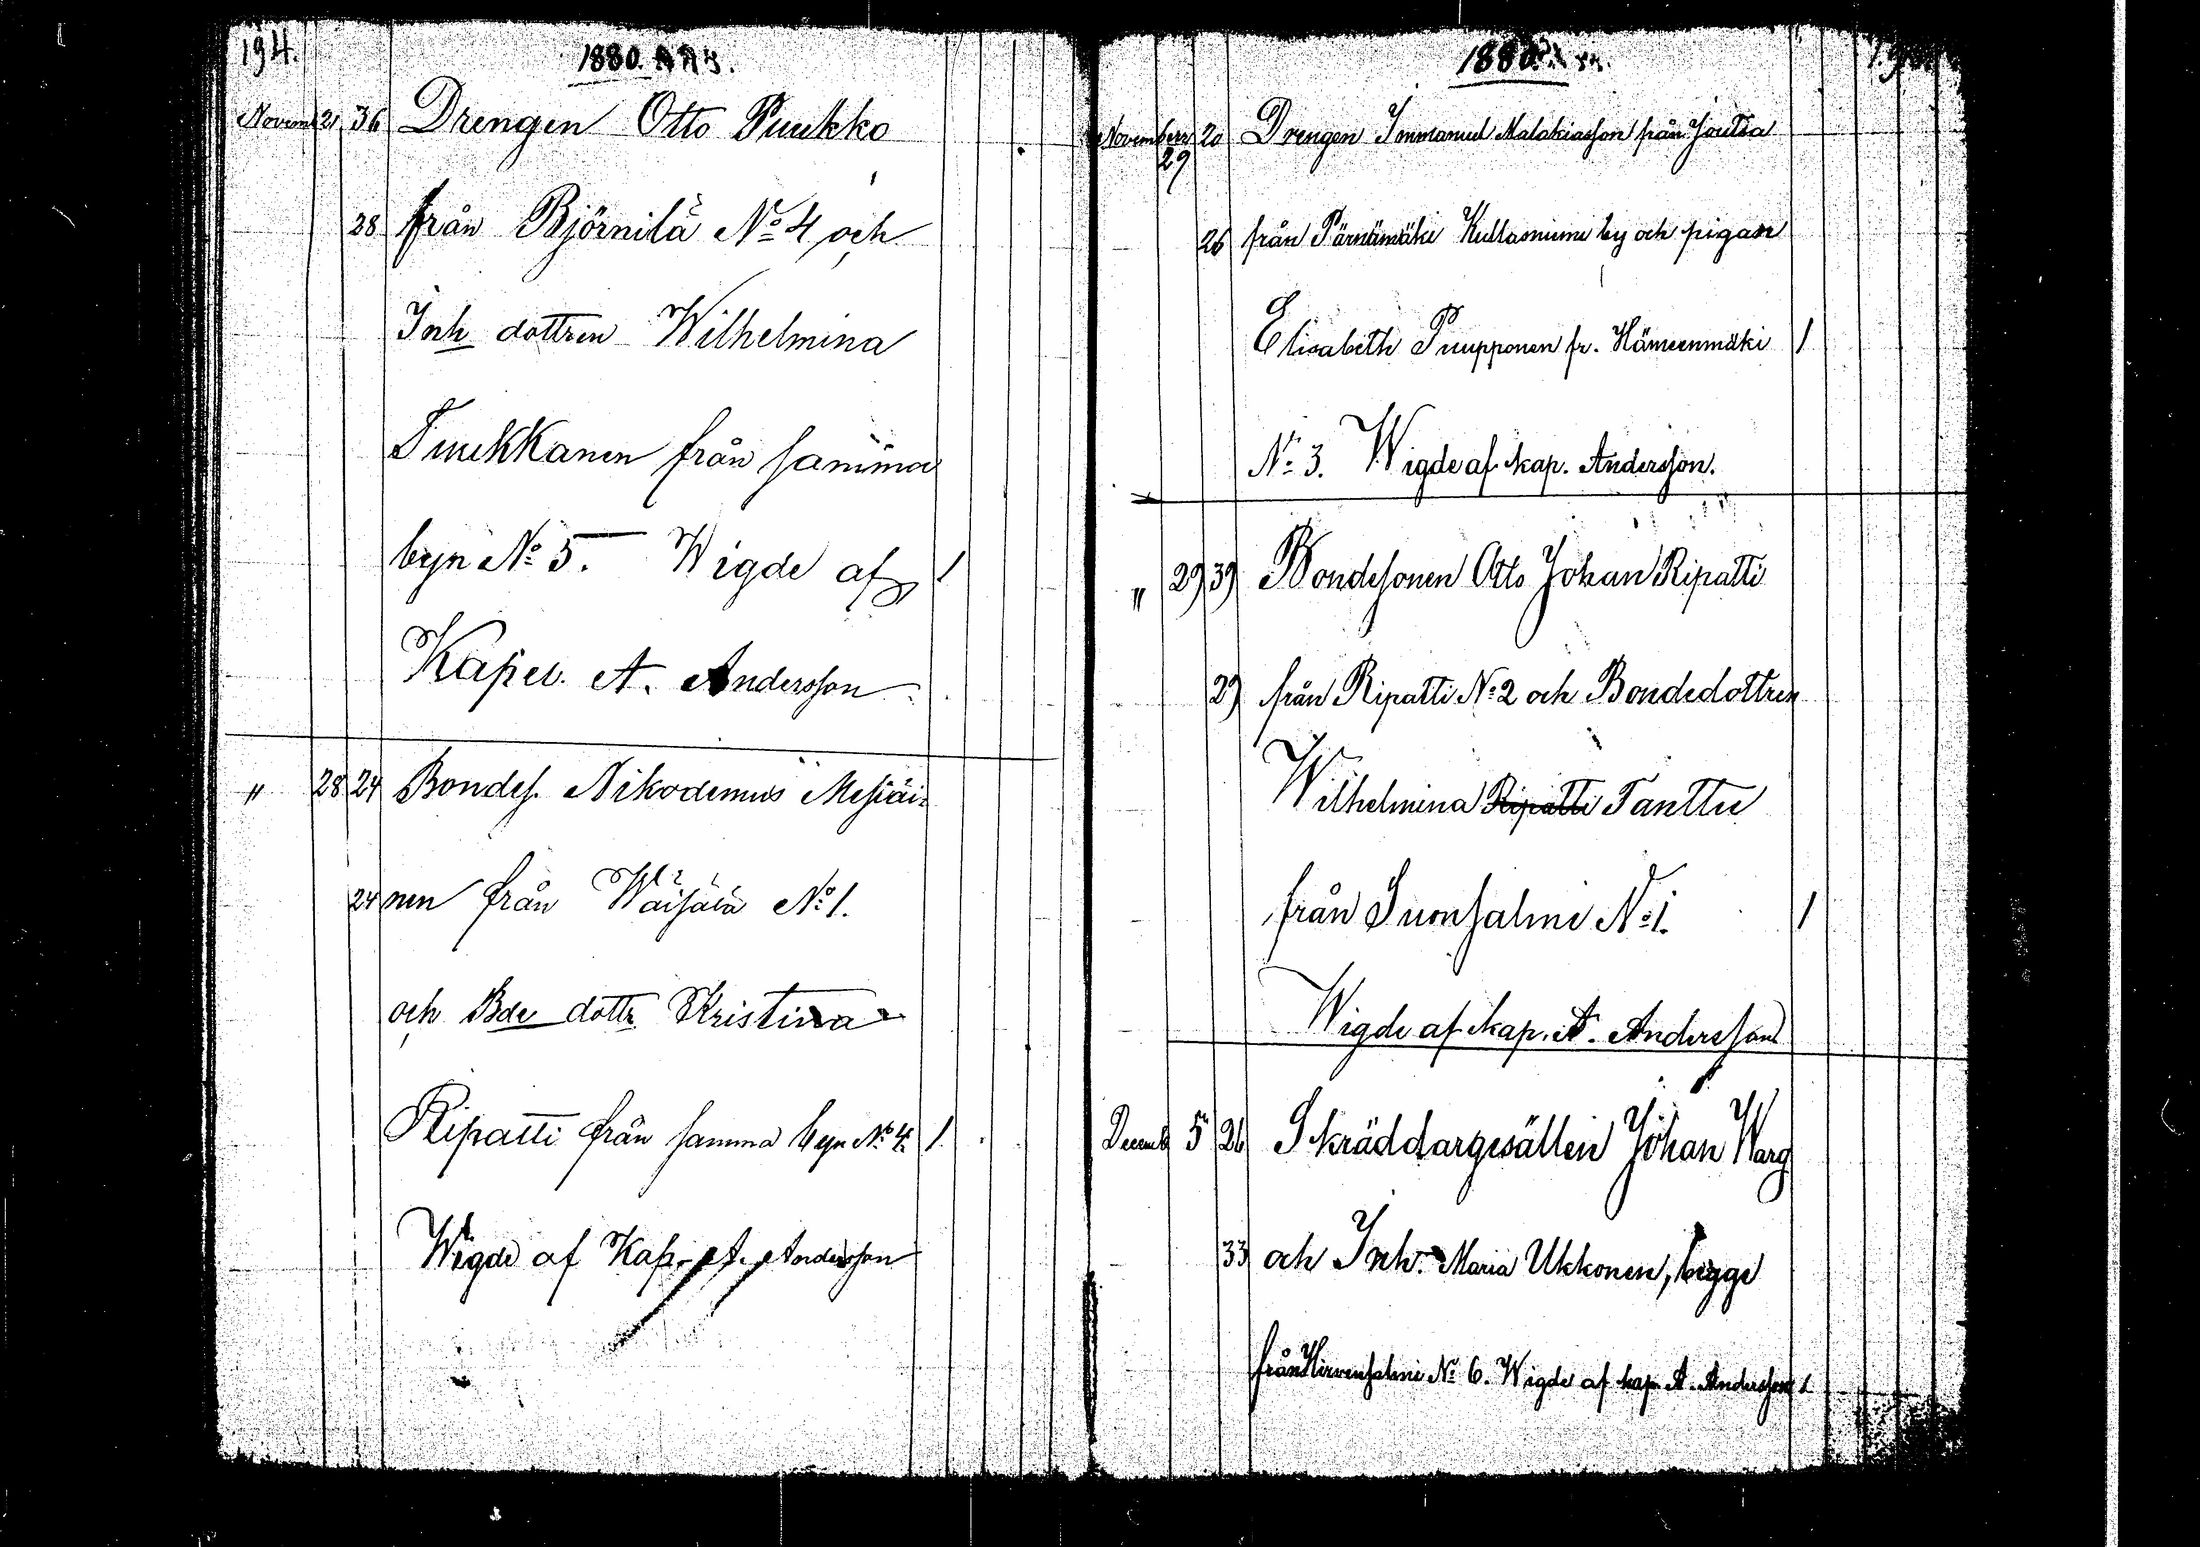 194.
1880.
Novemb 21 36 Drengen Otto Puukko
28 från Björnilä No 4 och
Inh dottren Wilhelmina
Tuukkanen från samma
byn No 5. Wigde af 1
Kapel. A. Andersson
" 28 24 Bondes. Nikodemus Mesiäi-
24 nen från Wäisälä No 1.
och Bde dottr Kristina
Ripatti från samma byn No 4. 1
Wigde af Kap. A. Andersson
1880.
November 29 20 Drengen Immanuel Malakiasson från Joutsa
26 från Pärnämäki Kullasniemi by och pigan
Elisabeth Puupponen fr. Hämeenmäki 1
No 3. Wigde af kap. Andersson.
" 29 39 Bondesonen Otto Johan Ripatti
29 från Ripatti No 2 och Bondedottren
Wilhelmina Ripatti Tanttu
från Suonsalmi No 1. 1
Wigde af kap. A. Andersson
Decemb 5 26 Skräddargesällen Johan Warg
33 och Inh. Maria Ukkonen, begge
från Hirvensalmi No 6. Wigde af kap. A. Andersson 1